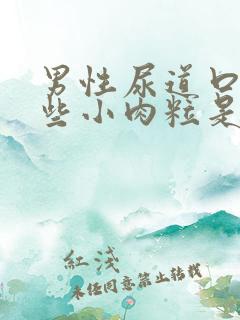 男性尿道口
些小肉粒是
红浅
未经同意禁止转载